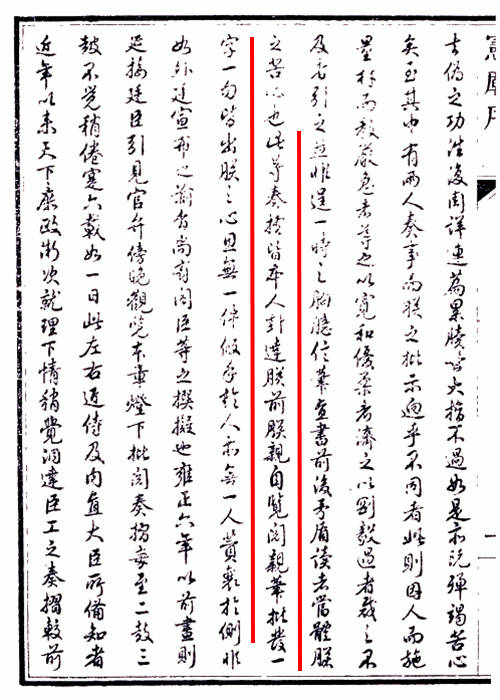 憲
去偽之功諄復周詳連篇累牘其大指不過如是亦既殫竭苦心
矣至其中有兩人奏事而朕之批示迥乎不同者此則因人而施
量材而教嚴急者導之以寬和優柔者濟之以剛毅過者裁之不
及者引之並非逞一時之胸臆信筆直書前後矛盾讀者當體朕
之苦心也此等奏摺皆本人封達朕前朕親自覽閱親筆批發一
字一句皆出朕之心思無一件假手於人亦無一人贊襄於側非
如外廷宣布之諭旨尚有閣臣等之撰擬也雍正六年以前晝則
延接廷臣引見官弁傍晚觀覽本章燈下批閱奏摺每至二鼓三
鼓不覺稍倦寔六載如一日此左右近侍及内直大臣所備知者
近年以來天下庶政漸次就理下情稍覺洞達臣工之奏摺較前